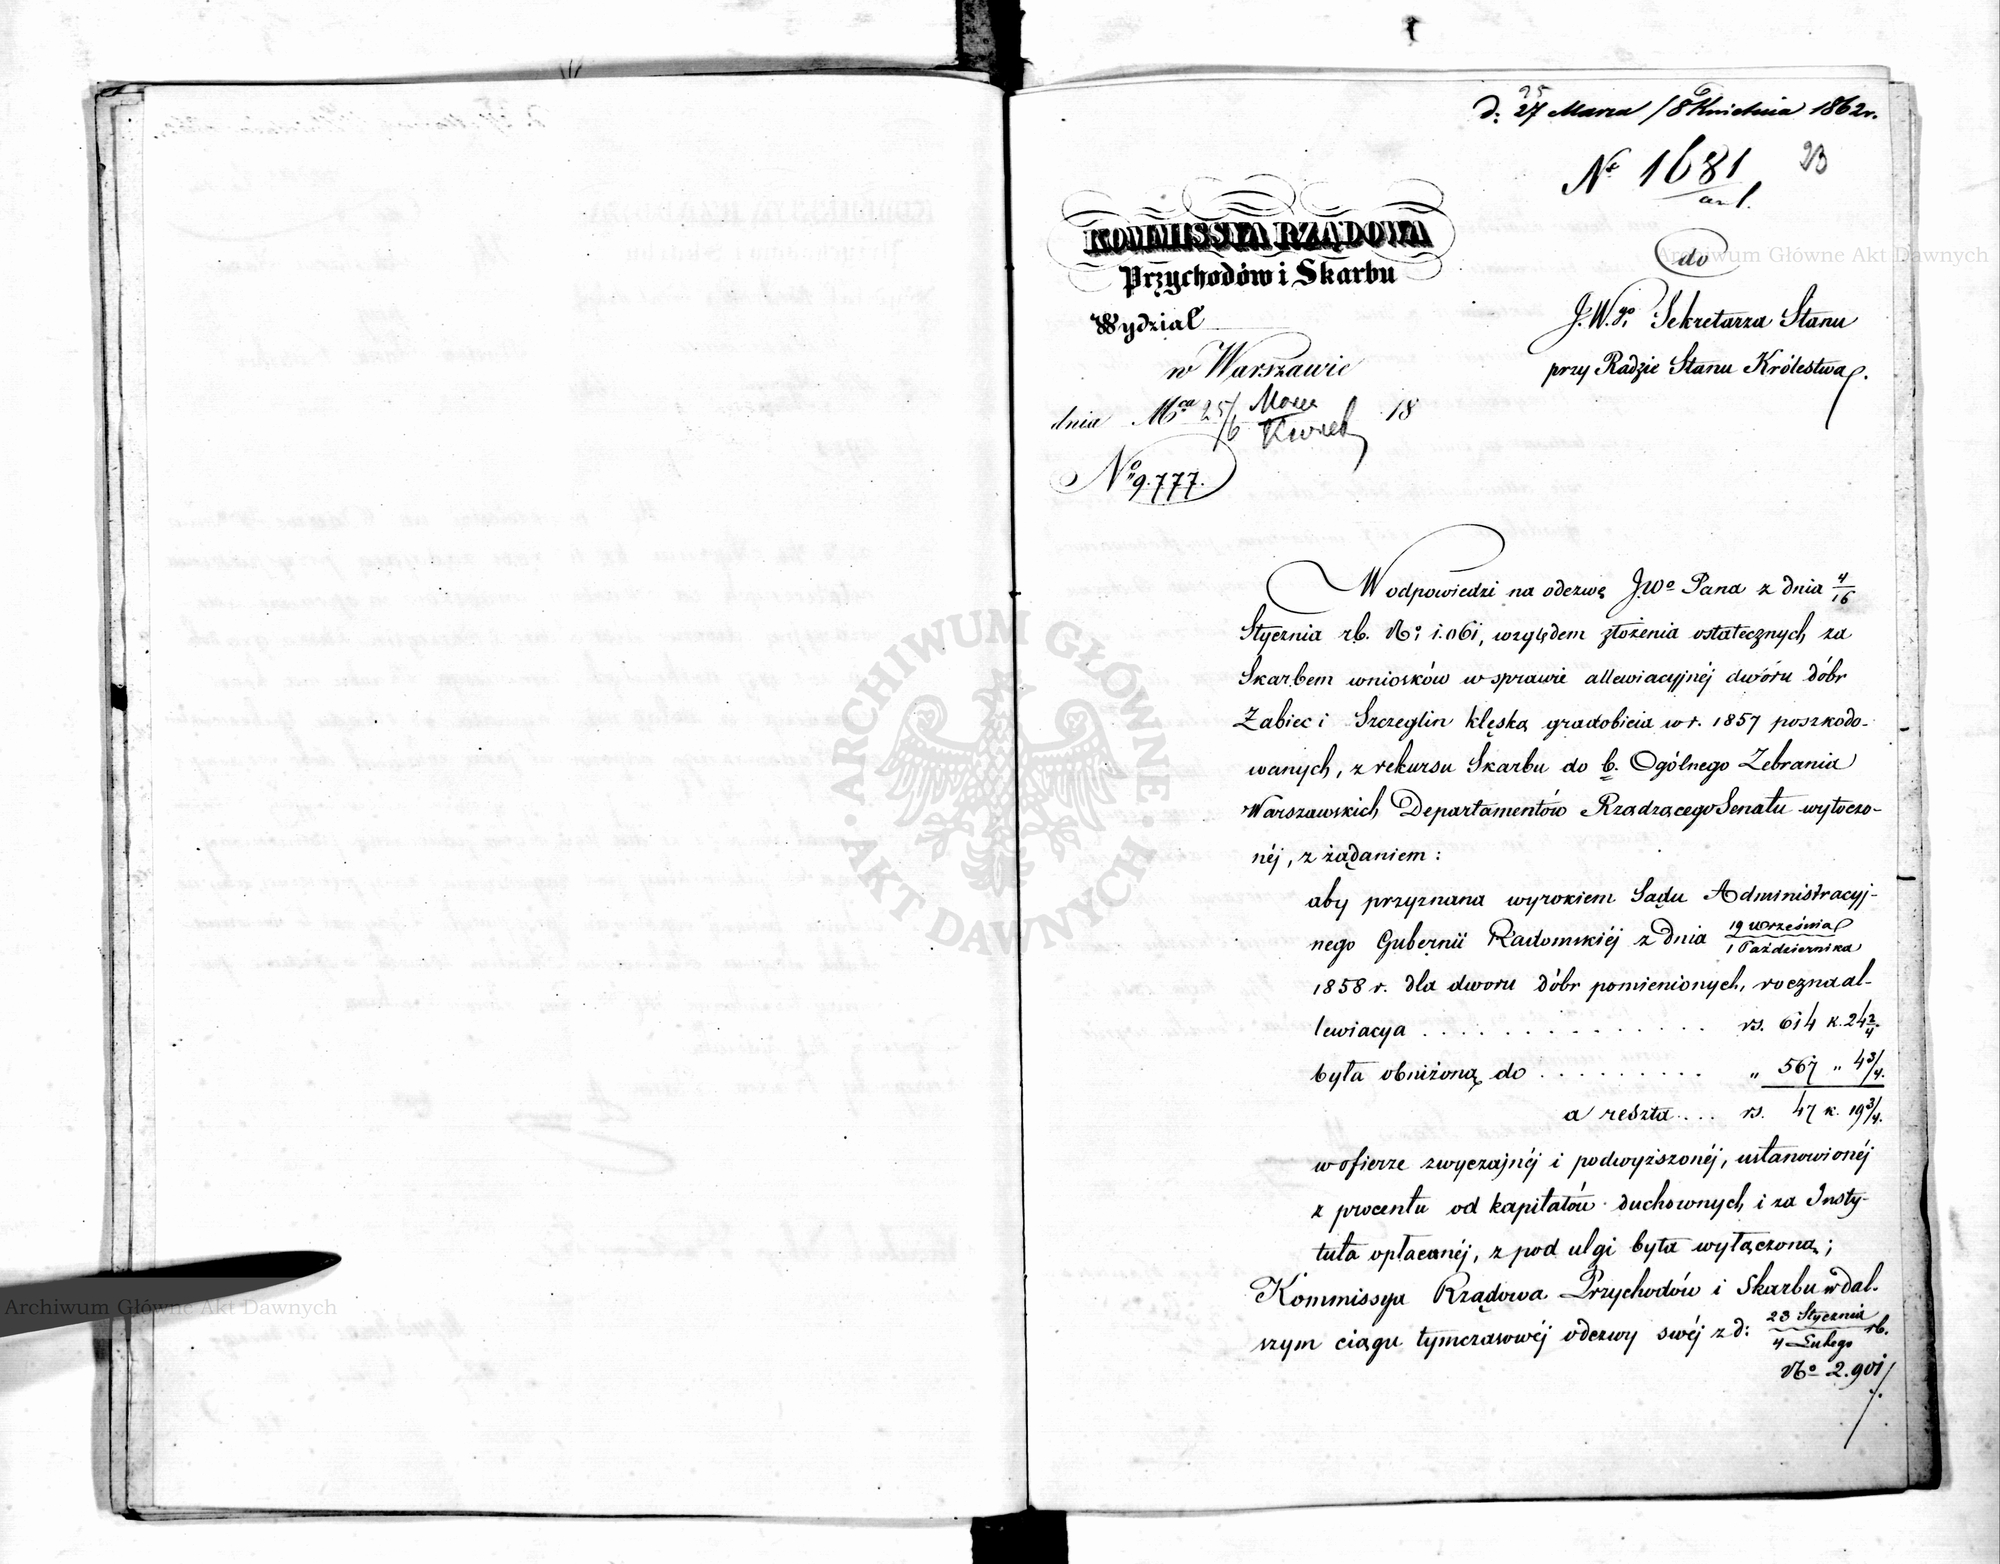 d: 27 Marca / 8 Kwietnia 1862 r.
25 6
N° 1681
23
KOMMISSYA RZĄDOWA
Przychodów i Skarbu
Wydział
w Warszawie
dnia Mca 25/6 Marca Kwiet 18
N° 9.777.
do
J.W.go Sekretarza Stanu
przy Radzie Stanu Królestwa.
W odpowiedzi na odezwę JWo Pana z dnia 4/16
Stycznia rb. No 1.061, względem złożenia ostatecznych za
Skarbem wniosków w sprawie allewiacyjnéj dworu dóbr
Zabiec i Szczeglin klęską gradobicia w r. 1857 poszkodo-
wanych, z rekursu Skarbu do b. Ogólnego Zebrania
Warszawskich Departamentów Rządzącego Senatu wytoczo-
néj, z żądaniem:
aby przyznana wyrokiem Sądu Administracyj-
nego Gubernii Radomskiéj z dnia 19 Września / 1 Października
1858 r. dla dworu dóbr pomienionych, roczna al-
lewiacya . . . . . . . . . . . . . . rs. 614 k. 24 2/4.
była obniżoną do . . . . . . . . . „ 567 „ 4 3/4.
a reszta . . . rs. 47 k. 19 3/4.
w ofierze zwyczajnéj i podwyższonéj, ustanowionéj
z procentu od kapitałów duchownych i za Insty-
tuta opłacanéj, z pod ulgi była wyłączoną;
Kommissya Rządowa Przychodów i Skarbu w dal-
szym ciągu tymczasowéj odezwy swéj z d: 23 Stycznia / 4 Lutego rb.
No 2.901/.
ARCHIWUM GŁÓWNE · AKT DAWNYCH ·
Archiwum Główne Akt Dawnych
Archiwum Główne Akt Dawnych